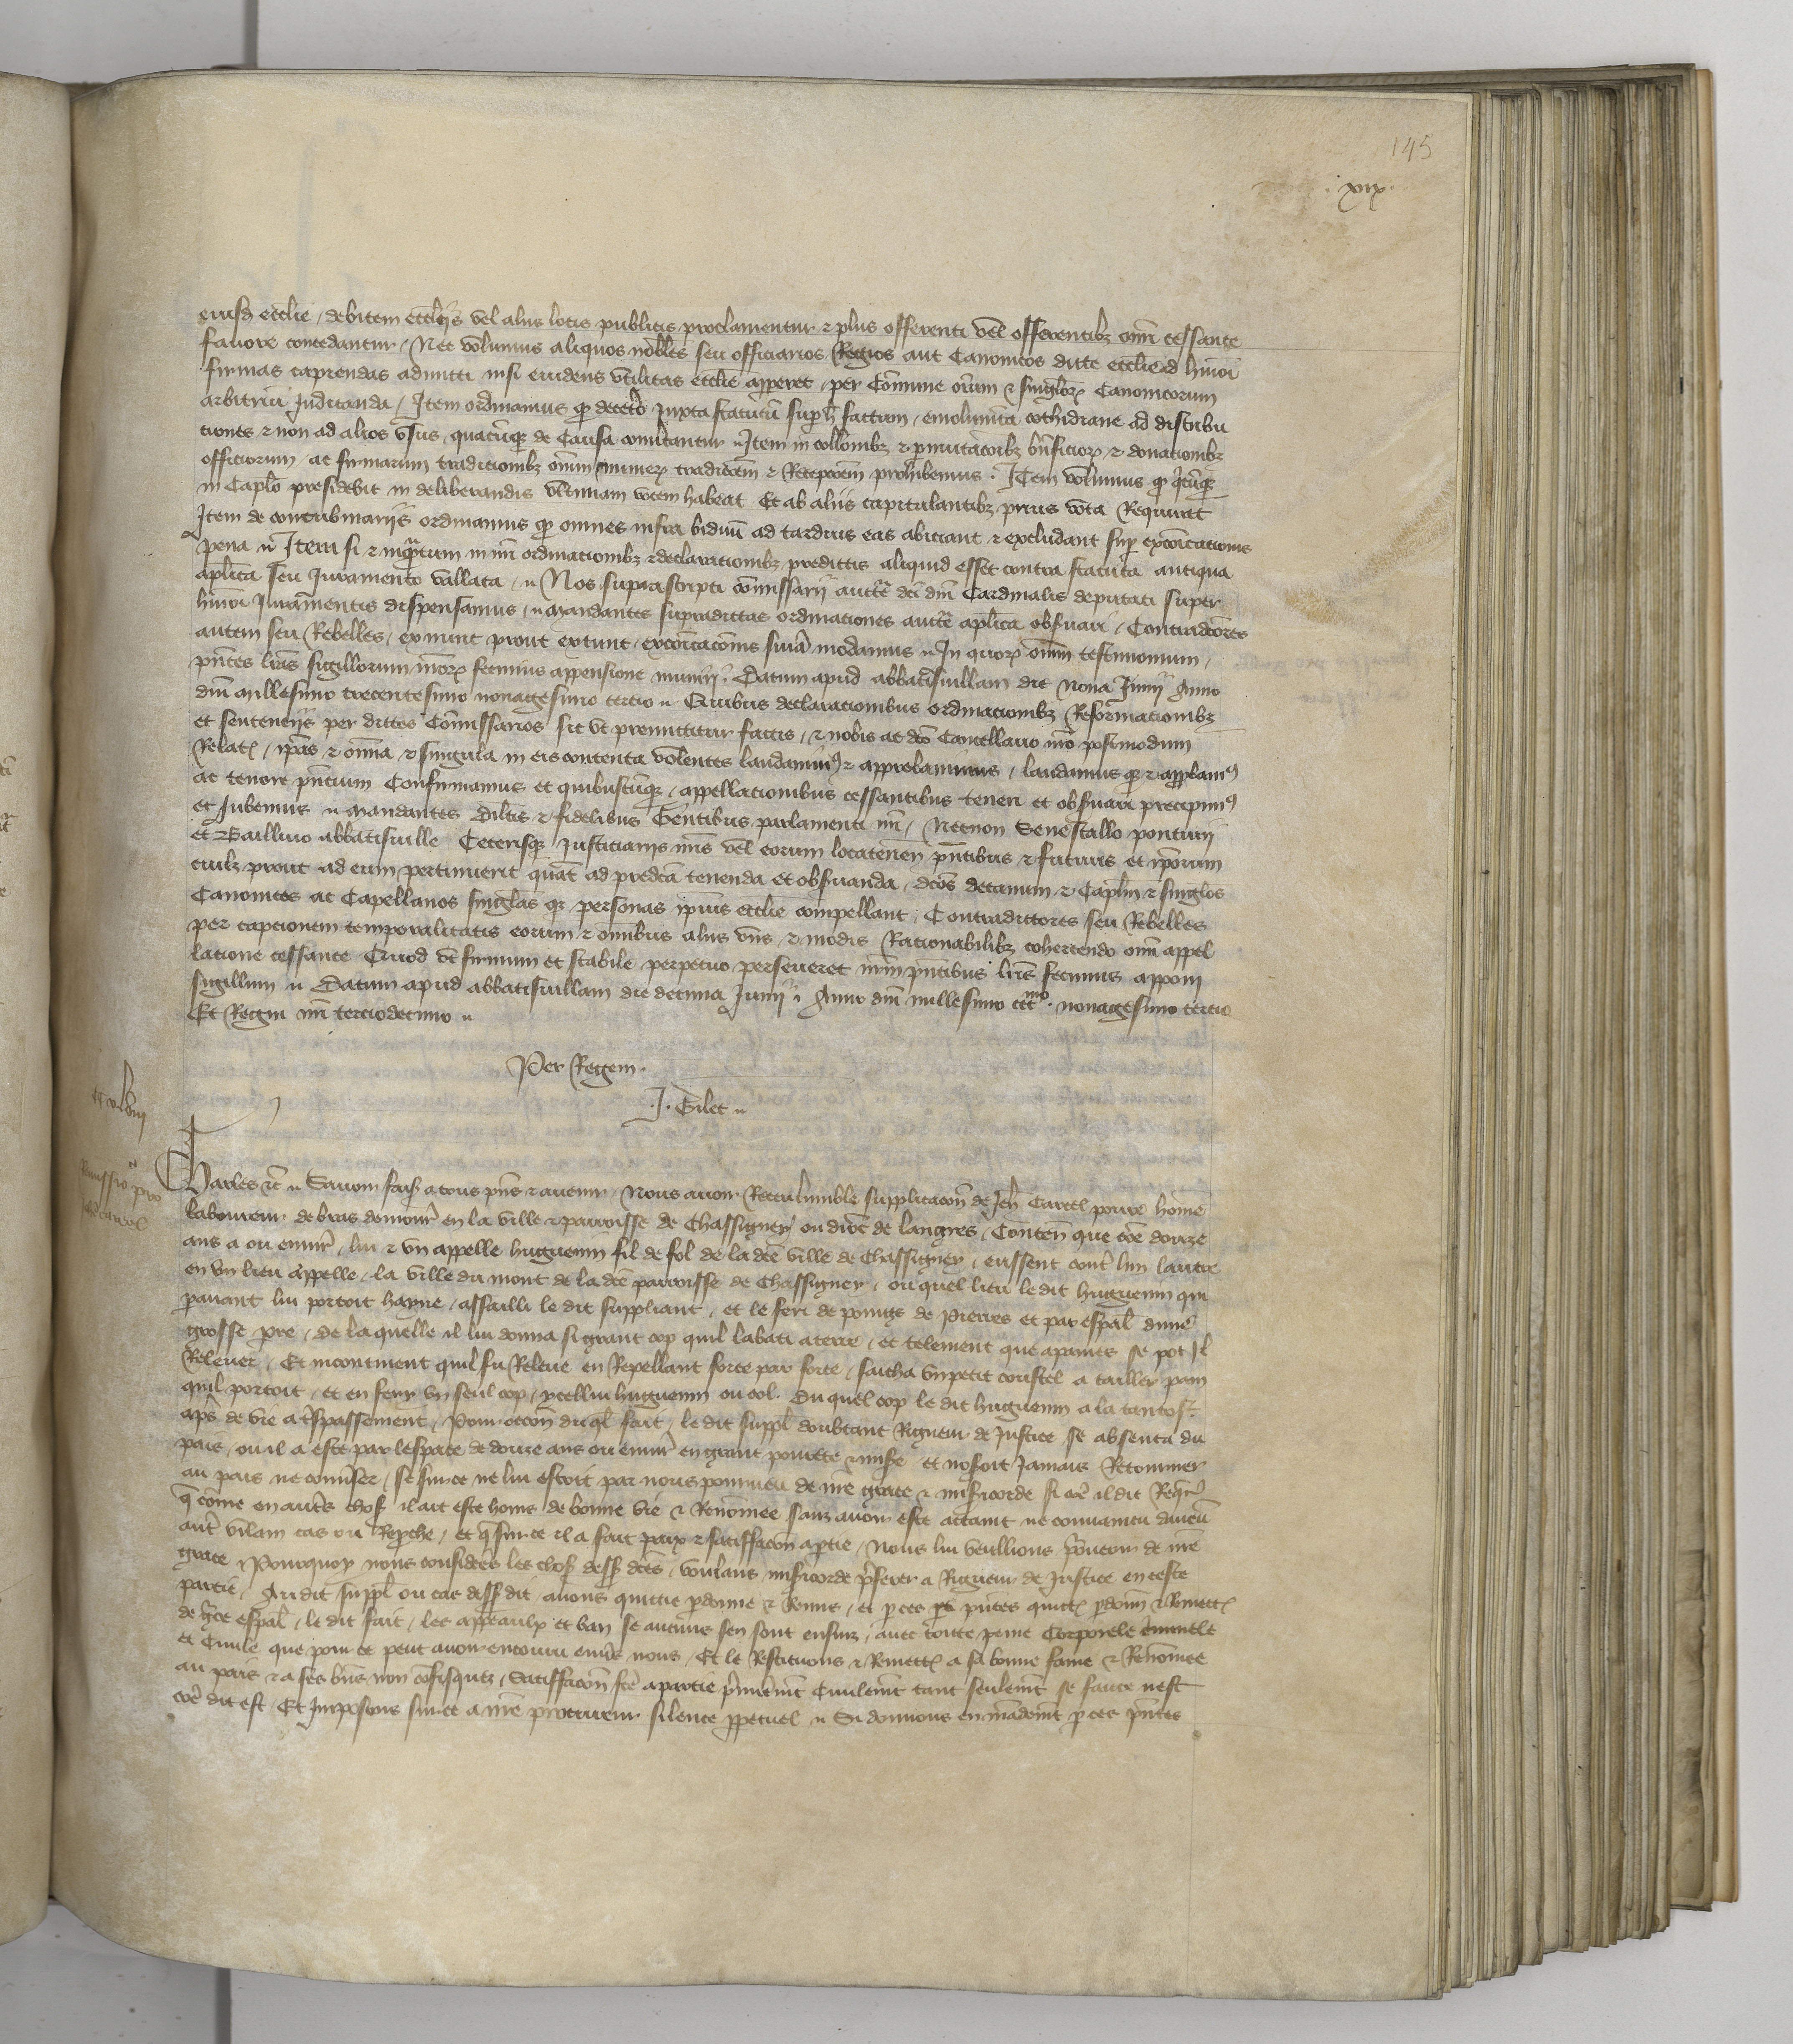 145
xix
eiusd ecclie, debitem eccliis vel aliis locis publicis proclamentur & plus offerenti vel offerentibz omi cessante
fauore concedantur, Nec volumus aliquos nobiles seu officiarios Regios aut Canonicos dicte ecclie ad hmoi
firmas capiendas admitti nisi euidens vtilitas ecclie apperet, per comune oium & singlorz Canonicorum
arbitriu Iudicanda, Item ordinamus qd decetero Iuxta statutu suph factum, emolumta cothidiane ad distribu
ciones & non ad alios vsus, quacuqz de causa comutantur Item in collonibz & pmutacoibz bnficiorz & donacionibz
officiorum ac firmarum tradicionibz omem munerz tradicoem & Recepcoem prohibemus. Item volumus qd qcuqz
in Caplo presidebit in deliberandis vltimam vocem habeat Et ab aliis capitulantibz prius vota Requirat
Item de concubinariis ordinamus qd omnes infra biduu ad tardius eas abiciant & excludant sup excoicacionis
pena Item si & inqtum in nris ordinacionibz & declaracionibz predictis aliquid esset contra statuta antiqua
aplica seu Iuramento vallata, Nos suprascripti comissarii aucte dci dni Cardinalis deputati super
hmoi Iuramentis dispensamus, mandantes supradictas ordinaciones aucte aplica obsuari, Contradcores
autem seu Rebelles, ex nunc prout extunc, excoicacois snia inodamus In quorz oium testimonium,
pntes lras sigillorum nrorz fecimus appensione muniri. Datum apud abbatisuillam die nona Iunii Anno
dni millesimo trecentesimo nonagesimo tercio Quibus declaracionibus ordinacionibz Reformacionibz
et sentenciis per dictos Comissarios sic vt premittitur factis, & nobis ac dco Cancellario nro postmodum
Relatis, ipas & omia & singula in eis contenta volentes laudamus & approbamus, laudamus qz & approbamus
ac tenore pntium Confirmamus et quibuscuqz, appellacionibus cessantibus teneri et obsuari precipimus
et Iubemus mandantes dilcis & fidelibus Gentibus parlamenti nri, Necnon Senescallo pontiui
et Bailliuo abbatisuille Ceterisqz Iusticiariis nris vel eorum locateneh pntibus & futuris et ipsorum
cuilz prout ad eum pertinuerit quat ad predca tenenda et obsuanda, dcos decanum & Caplm & singlos
Canonicos ac Capellanos singlas qz personas ipius ecclie compellant, Contradictores seu Rebelles
per capcionem temporalitatis eorum & omnibus aliis viis & modis Racionabilibz cohercendo omi appel
lacione cessante Quod vt firmum et stabile perpetuo perseueret nrm pntibus lris fecimus apponi
sigillum Datum apud abbatisuillam die decima Iunii Anno dni millesimo ccc mo nonagesimo tercio
Et Regni nri terciodecimo
Per Regem.
.J. Gilet
Charles &c Sauoir fais a tous pns & auenir, Nous auoir Receu lumble supplicacon de Jeh Carel poure home
laboureur de bras demour en la ville & parroisse de Chassigney ou dioc de langres, Conten que coe douze
ans a ou enuir, lui & vn appelle huguenin fil de fol de la dce ville de Chassigney, eussent lun lautre
en vn lieu appelle, la ville du mont de la dce parroisse de Chassigney, ou quel lieu le dit huguenin qui
pauant lui portoit hayne, assailli le dit suppliant, et le feri de poings de pierres et par espal dune
grosse pre, de laquelle il lui donna si grant cop quil labati a terre, et telement que apaines se pot Il
Releuer, Et incontinent quil fu Releue en Repellant force par force, sacha vn petit coustel a tailler pain
quil portoit, et en feri vn seul cop, ycellui huguenin ou col. Du quel cop le dit huguenin ala tantost
aps de vie a trespassement, Pour occon duql fait, le dit suppl doubtant Rigueur de Justice se absenta du
pais, ou il a este par lespace de douze ans ou enuir en grant pourete & mise et nosoit Jamais Retourner
au pais ne conuser, se sur ce ne lui estoit par nous pourueu de nre grace & misicorde si coe il dit Requer
q come en autres choses il ait este home de bonne vie & Renomee sanz auoir este attaint ne conuaincu daucu
autre vilain cas ou Reproche, et q sur ce il a fait paix & satisfaccon a ptie, Nous lui veullions pourueoir de nre
grace Pourquoy nous consideres les choses dess dces, voulans misicorde pferer a Rigueur de Justice en ceste
partie, Au dit suppl ou cas dess dit auons quicte pdonne & Remis, et p ces pntes quictons pdonnons & Remettons
de grce espal, le dit fait, les appeaulx et ban se aucuns sen sont ensuiz, auec toute peine Corporele criminele
et Ciuile que pour ce peut auoir encouru enuers nous, Et le Restituons & Remettons a sa bonne fame & Renomee
au pais & a ses biens non cofisquez, Satisfaccon fce a partie premieremt Ciuilemt tant seulemt se faicte nest
coe dit est, Et Imposons sur ce a nre procureur silence ppetuel Si donnons en mademt p ces pntes